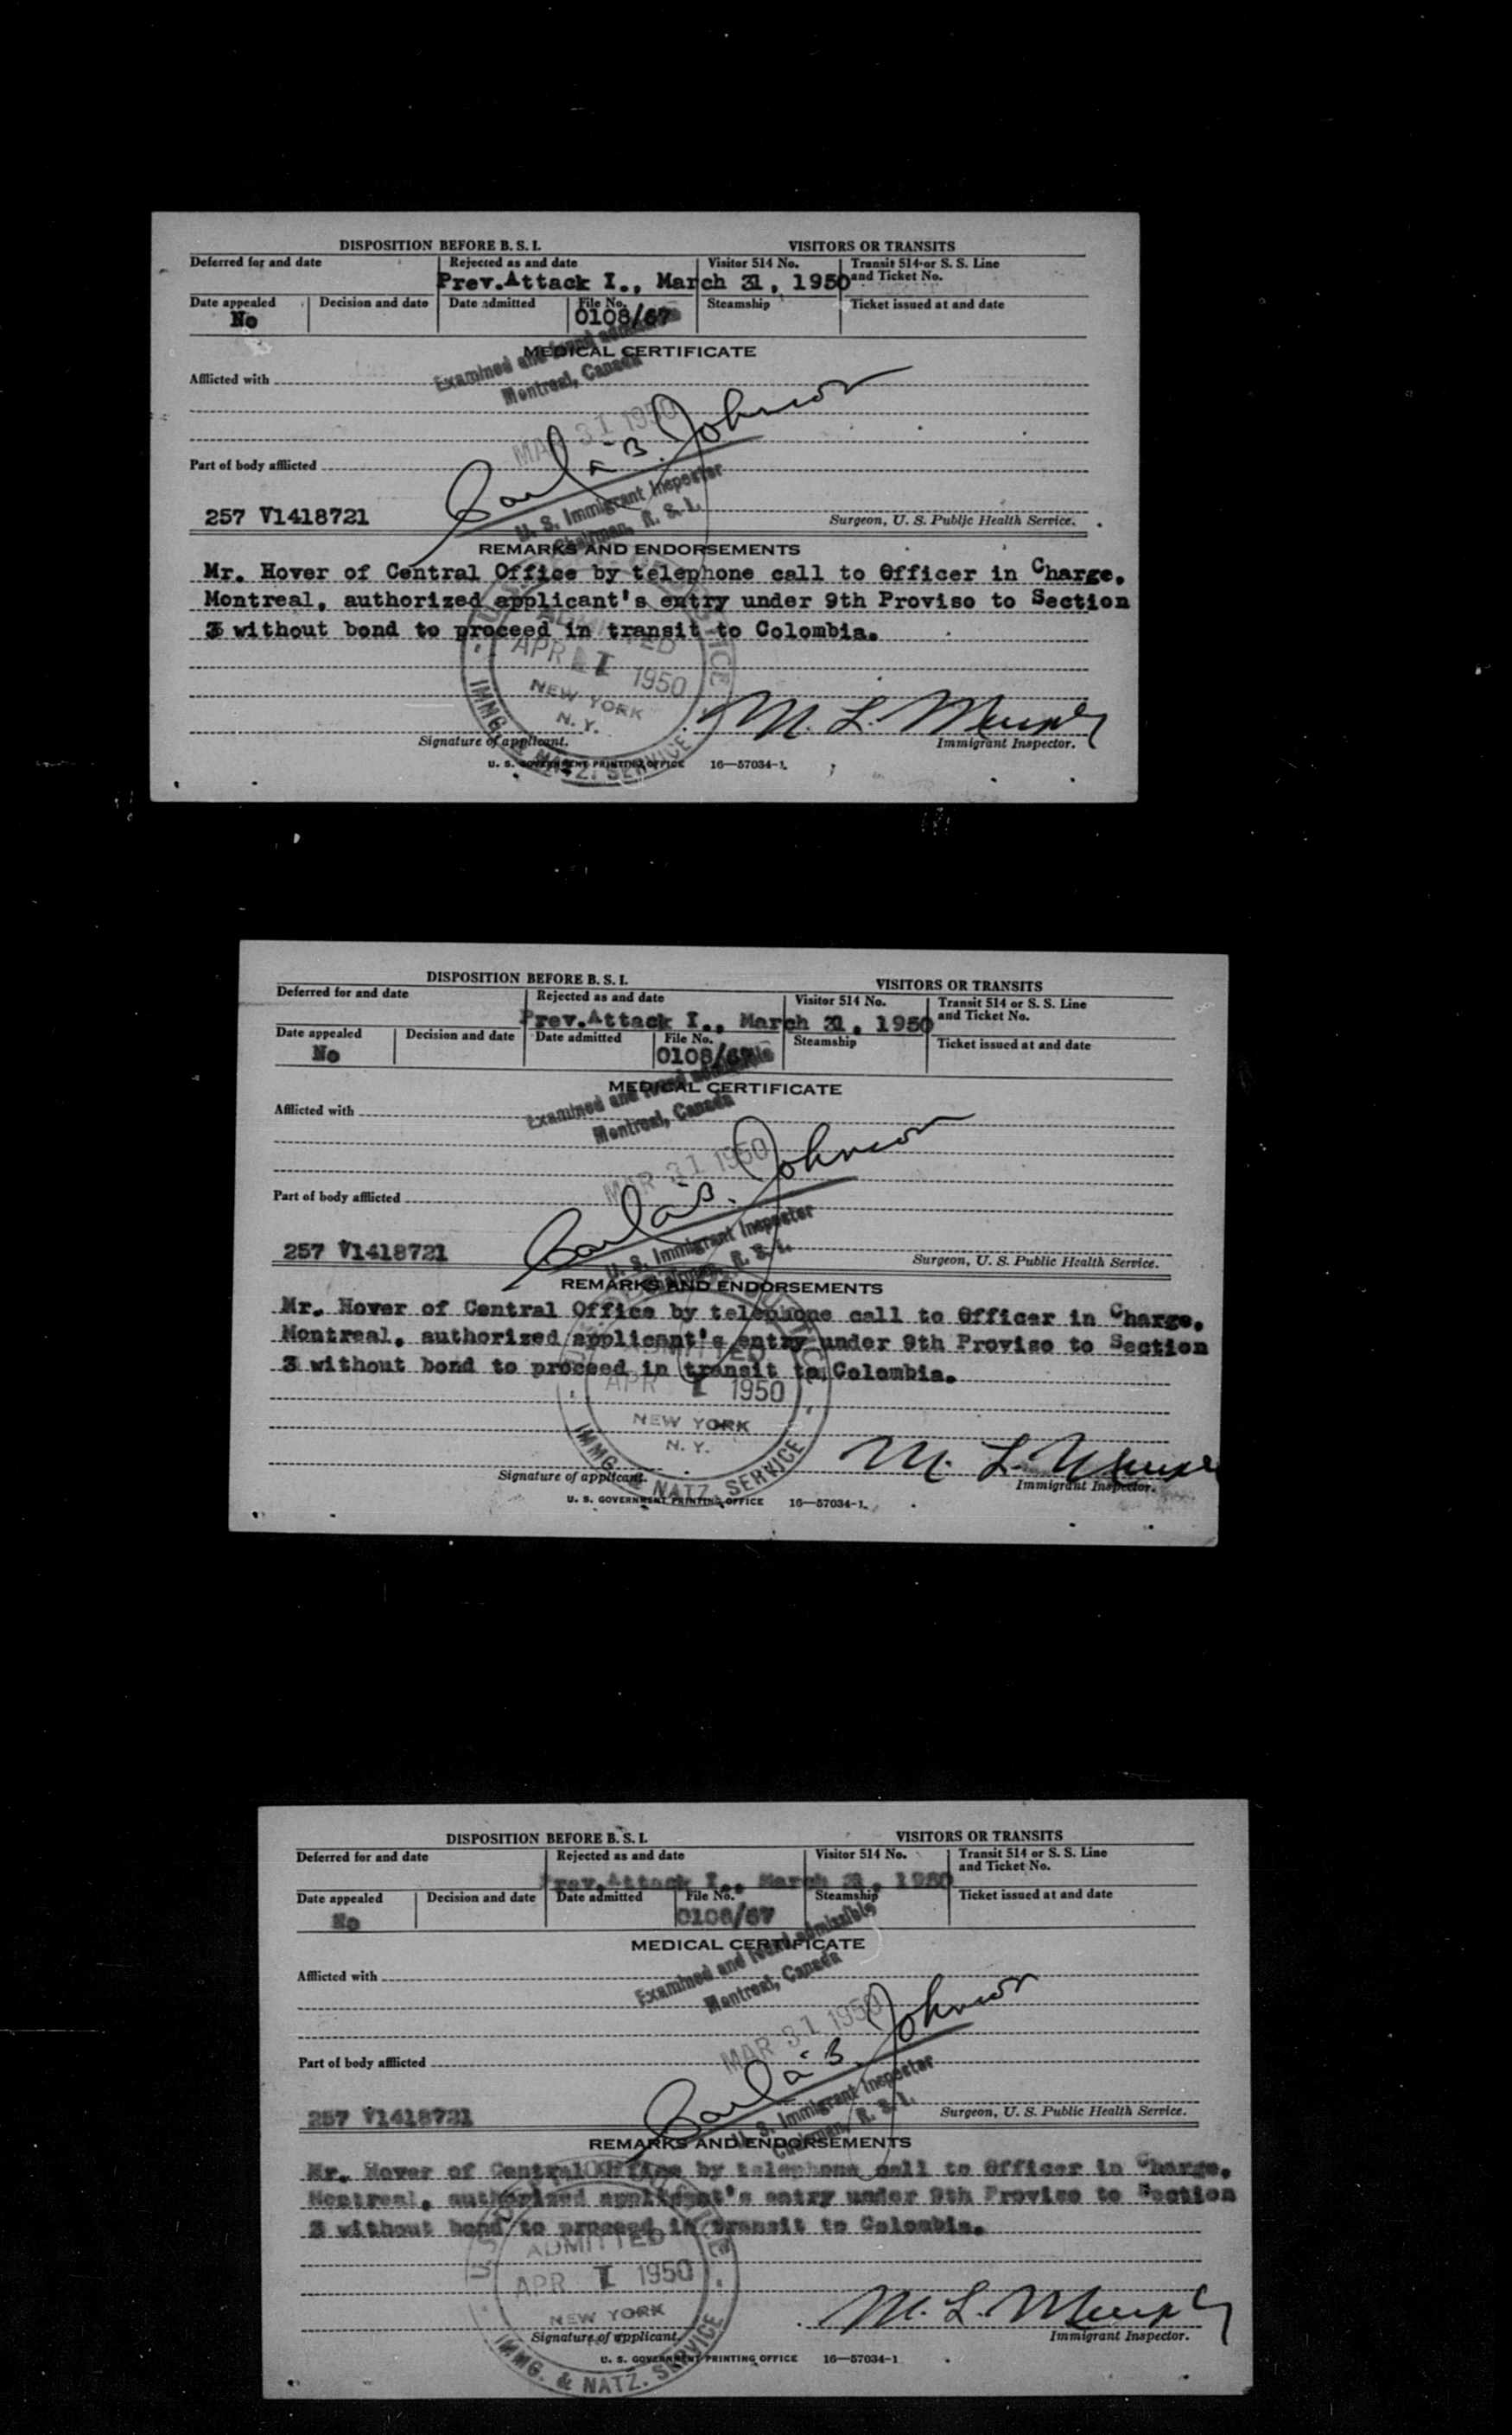 DISPOSITION BEFORE B. S. I. VISITORS OR TRANSITS
Deferred for and date Rejected as and date Visitor 514 No. Transit 514 or S. S. Line
and Ticket No.
Prev.Attack I., March 31, 1950
Date appealed Decision and date Date admitted File No. Steamship Ticket issued at and date
No 0108/67
MEDICAL CERTIFICATE
Examined and found admissible
Montreal, Canada
Afflicted with
MAR 31 1950
Carl B. Johnson
Part of body afflicted
U. S. Immigrant Inspector
Chairman, B. S. I.
257 V1418721 Surgeon, U. S. Public Health Service.
REMARKS AND ENDORSEMENTS
Mr. Hover of Central Office by telephone call to Officer in Charge,
Montreal, authorized applicant's entry under 9th Proviso to Section
3 without bond to proceed in transit to Colombia.
ADMITTED
APR 1 1950
NEW YORK
N. Y.
IMMG. & NATZ. SERVICE
M. L.
Signature of applicant. Immigrant Inspector.
U. S. GOVERNMENT PRINTING OFFICE 16—57034-1
DISPOSITION BEFORE B. S. I. VISITORS OR TRANSITS
Deferred for and date Rejected as and date Visitor 514 No. Transit 514 or S. S. Line
and Ticket No.
Prev.Attack I., March 31, 1950
Date appealed Decision and date Date admitted File No. Steamship Ticket issued at and date
No 0108/67
MEDICAL CERTIFICATE
Examined and found admissible
Montreal, Canada
Afflicted with
MAR 31 1950
Carl B. Johnson
Part of body afflicted
U. S. Immigrant Inspector
Chairman, B. S. I.
257 V1418721 Surgeon, U. S. Public Health Service.
REMARKS AND ENDORSEMENTS
Mr. Hover of Central Office by telephone call to Officer in Charge,
Montreal, authorized applicant's entry under 9th Proviso to Section
3 without bond to proceed in transit to Colombia.
ADMITTED
APR 1 1950
NEW YORK
N. Y.
IMMG. & NATZ. SERVICE
M. L.
Signature of applicant. Immigrant Inspector.
U. S. GOVERNMENT PRINTING OFFICE 16—57034-1
DISPOSITION BEFORE B. S. I. VISITORS OR TRANSITS
Deferred for and date Rejected as and date Visitor 514 No. Transit 514 or S. S. Line
and Ticket No.
Prev.Attack I., March 31, 1950
Date appealed Decision and date Date admitted File No. Steamship Ticket issued at and date
No 0108/67
MEDICAL CERTIFICATE
Examined and found admissible
Montreal, Canada
Afflicted with
MAR 31 1950
Carl B. Johnson
Part of body afflicted
U. S. Immigrant Inspector
Chairman, B. S. I.
257 V1418721 Surgeon, U. S. Public Health Service.
REMARKS AND ENDORSEMENTS
Mr. Hover of Central Office by telephone call to Officer in Charge,
Montreal, authorized applicant's entry under 9th Proviso to Section
3 without bond to proceed in transit to Colombia.
ADMITTED
APR 1 1950
NEW YORK
IMMG. & NATZ. SERVICE
M. L.
Signature of applicant. Immigrant Inspector.
U. S. GOVERNMENT PRINTING OFFICE 16—57034-1